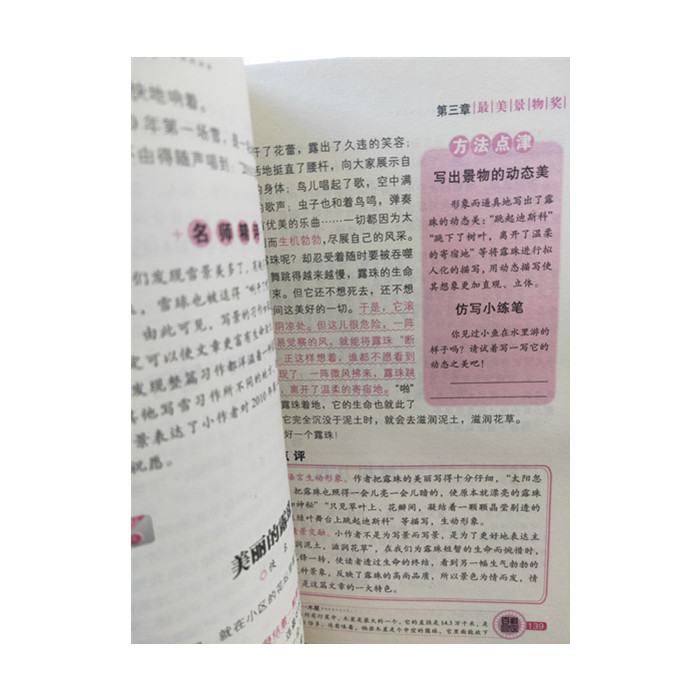 快地响着。
年第一场雪，是一
由得随声唱到：
名师精评
们发现雪景美多了，
，雪球也被逗得
由此可见，写景的习作
可以使文章更富有
发现整篇习作都洋溢着一种
他写雪习作所不同的地
景表达了小作者对2010年
祝愿。
美丽的露珠
就在小区的花坛
第三章 最美景物奖
开了花蕾，露出了久违的笑容；
活地挺直了腰杆，向大家展示自
的身体；鸟儿唱起了歌，空中满
的歌声；虫子也和着鸟鸣，弹奏
优美的乐曲……一切都因为太
而生机勃勃，尽展自己的风采。
露珠呢？却忍受着随时要被吞噬
舞跳得越来越慢，露珠的生命
束。但它还不想死去，还不想
间这美好的一切。于是，它滚
阴凉处。但这儿很危险，一阵
易觉察的风，就能将露珠“断
正这样想着，谁都不愿看到
现了：一阵微风拂来，露珠跳
，离开了温柔的寄宿地。“啪”
露珠着地，它的生命也就此了
它完全沉没于泥土时，就会去滋润泥土，滋润花草。
好一个露珠！
方法点津
写出景物的动态美
形象而逼真地写出了露
珠的动态美：“跳起迪斯科”
“跳下了树叶，离开了温柔
的寄宿地”等将露珠进行拟
人化的描写，用动态描写使
其想象更加直观、立体。
仿写小练笔
你见过小鱼在水里游的
样子吗？请试着写一写它的
动态之美吧！
点评
语言生动形象。作者把露珠的美丽写得十分仔细，“太阳忽
把露珠也照得一会儿亮一会儿暗的，使原本就漂亮的露珠
加神秘”“只见草叶上、花瓣间，凝结着一颗颗晶莹剔透的
绿叶舞台上跳起迪斯科”等描写，生动形象。
情景交融。小作者不是为写景而写景，是为了更好地表达主
润泥土，滋润花草”，在我们为露珠短暂的生命而惋惜时，
锋一转，使读者透过生命的终结，看到另一幅生气勃勃的
种景象，反映了露珠的高尚品质，所以景色为情而发，情
是这篇文章的一大特色。
木星
所有行星中，木星是最大的一个，它的直径是14.3万千米，是
倍多；这意味着，倘若木星是个中空的圆球，它里面能放下
139